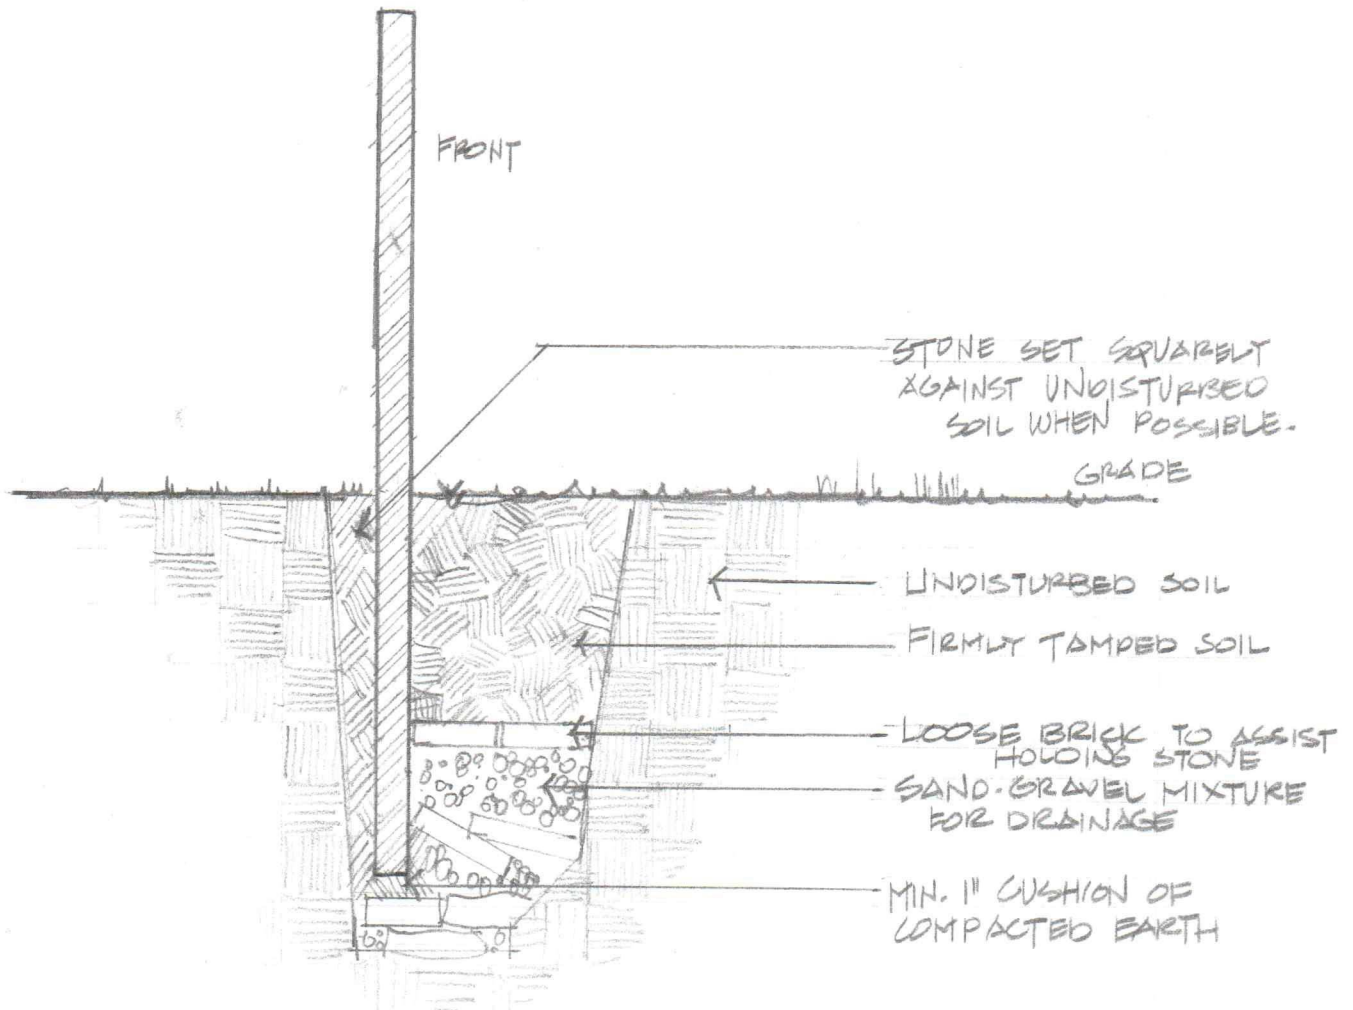 FRONT
STONE SET SQUARELY
AGAINST UNDISTURBED
SOIL WHEN POSSIBLE.
GRADE
UNDISTURBED SOIL
FIRMLY TAMPED SOIL
LOOSE BRICK TO ASSIST
HOLDING STONE
SAND-GRAVEL MIXTURE
FOR DRAINAGE
MIN. 1" CUSHION OF
COMPACTED EARTH